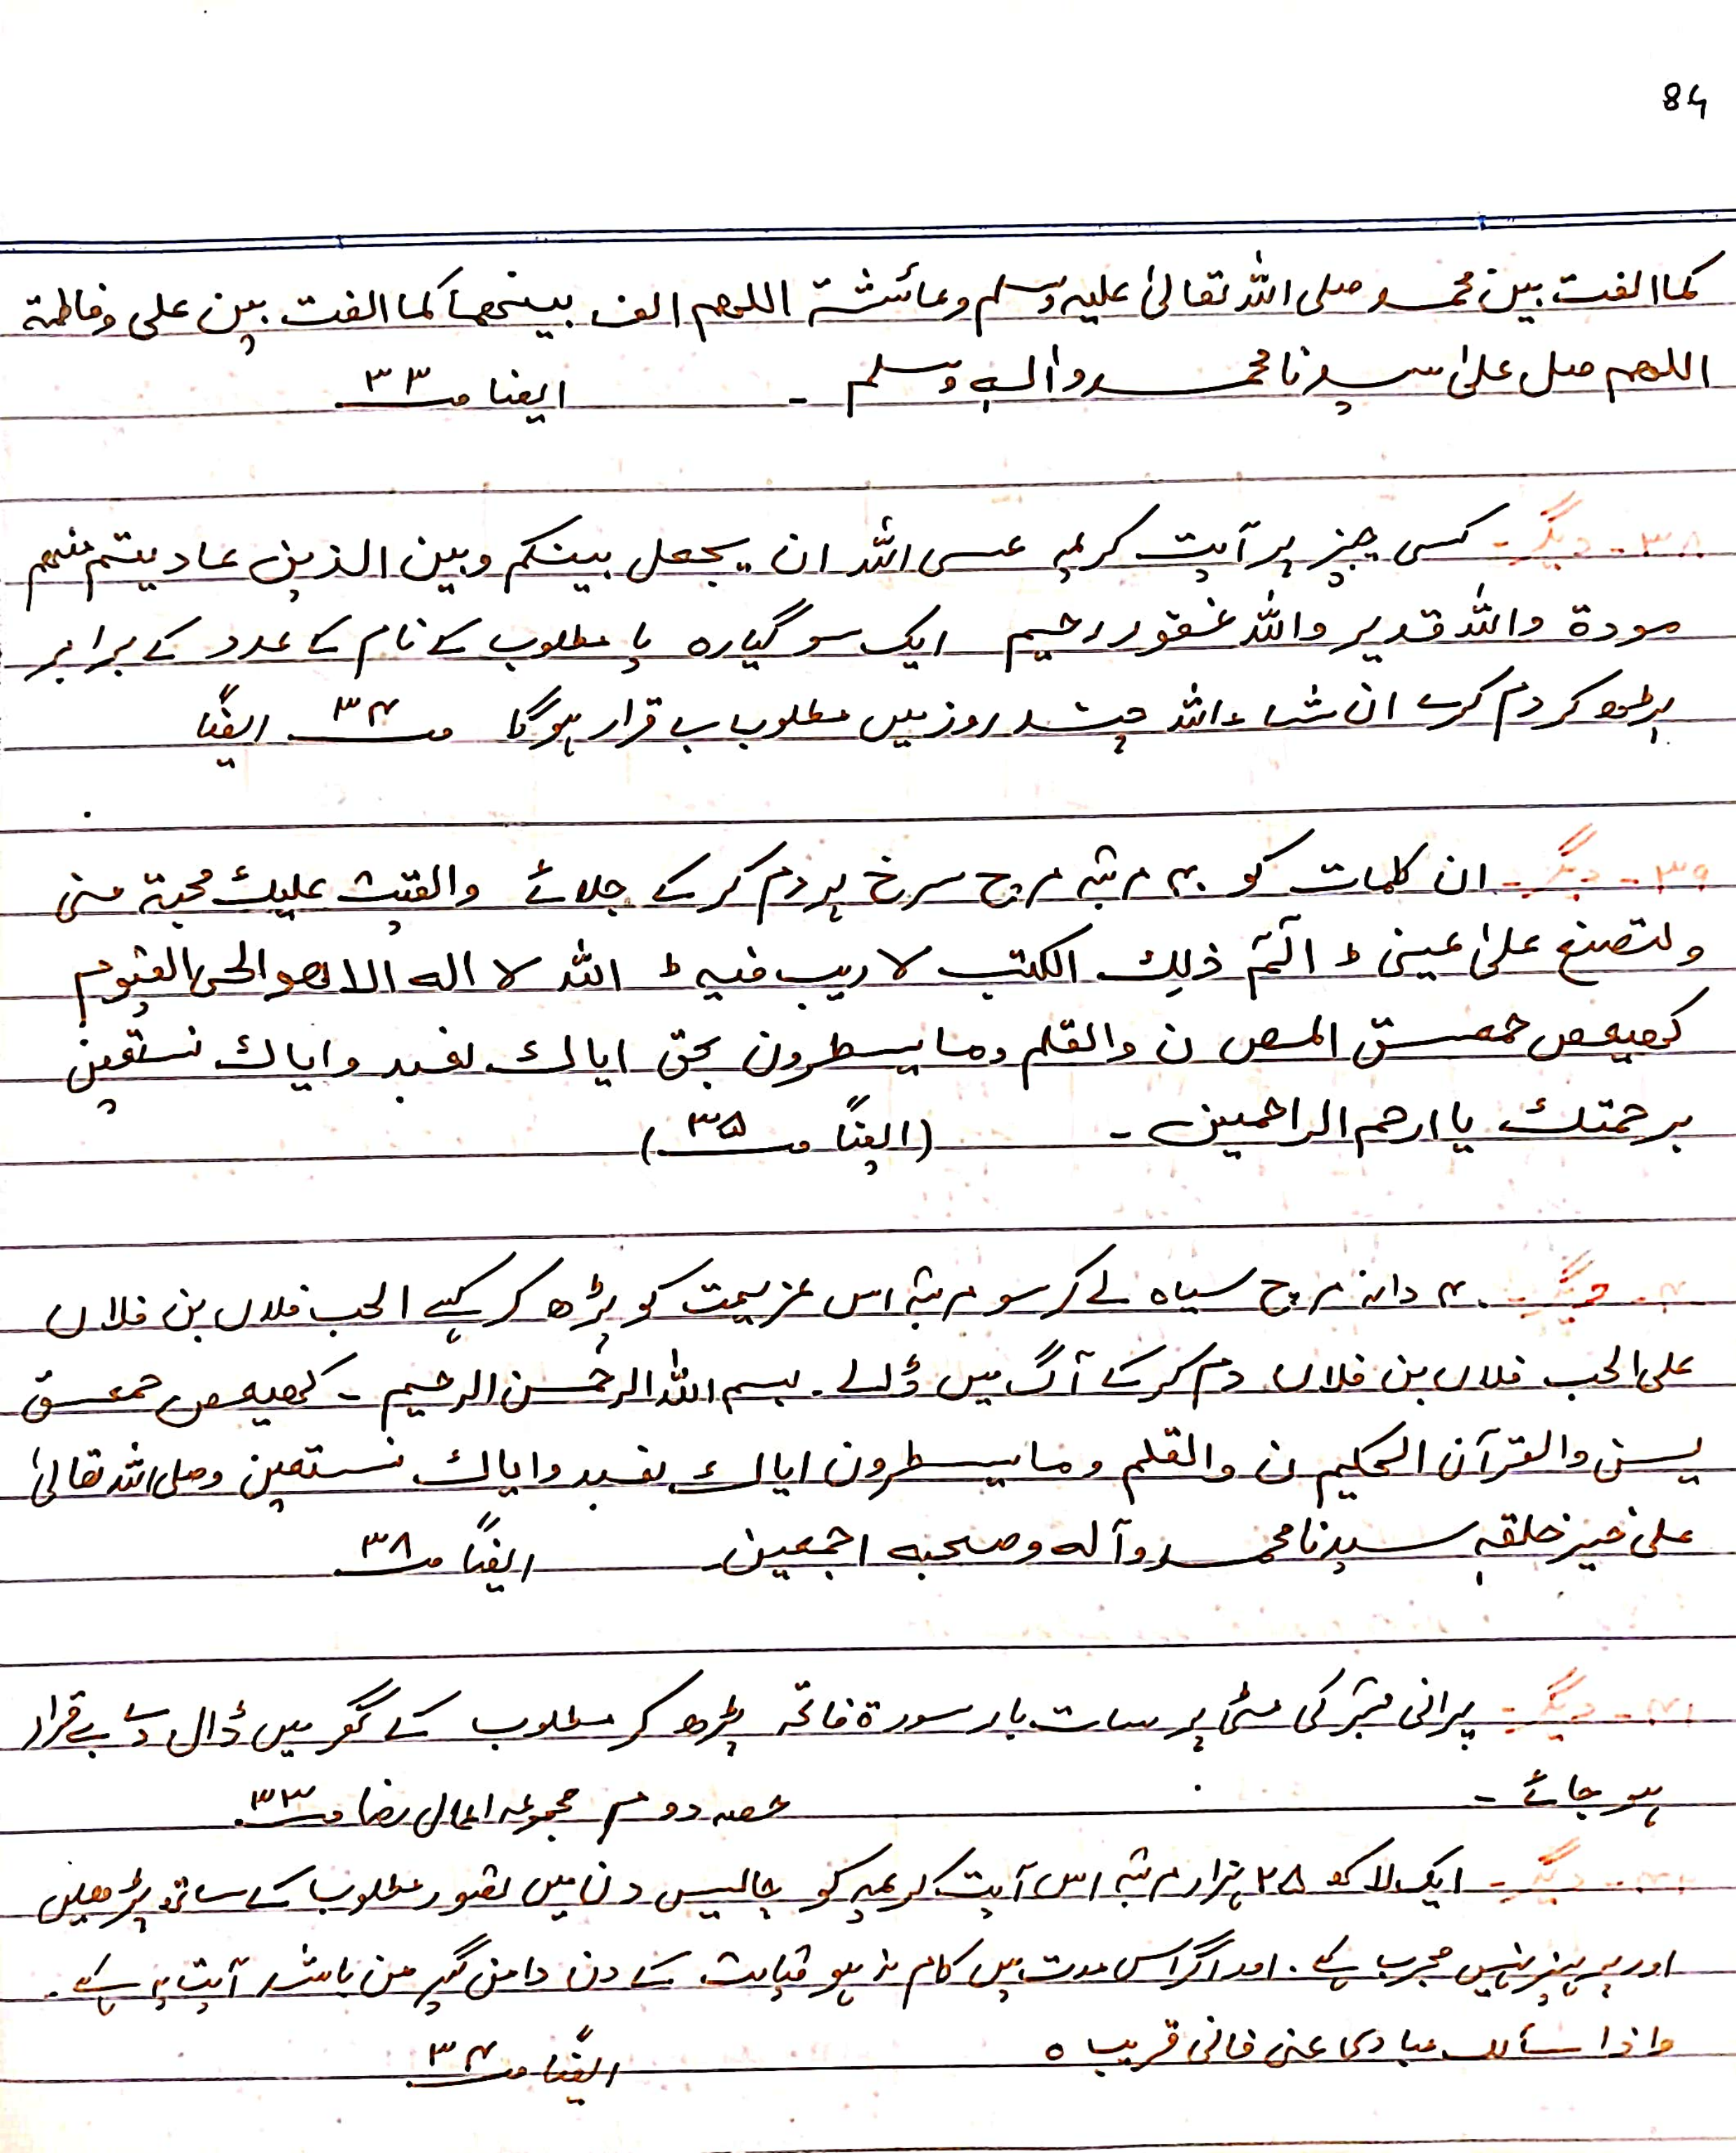 84
کما الفت بین محمد صلی اللہ تعالیٰ علیہ وسلم وعائشة اللھم الف بینھما کما الفت بین علی وفاطمة
اللھم صل علیٰ سیدنا محمد واٰلہٖ وسلم ۔ ایضا صـ ۳۳
۳۸۔ دیگر۔ کسی چیز پر آیت کریمہ عسی اللہ ان یجعل بینکم وبین الذین عادیتم منہم
مودة واللہ قدیر واللہ غفور رحیم ایک سو گیارہ یا مطلوب کے نام کے عدد کے برابر
پڑھ کر دم کرے ان شاءاللہ چند روز میں مطلوب بے قرار ہوگا صـ ۳۴ ایضًا
۳۹۔ دیگر۔ ان کلمات کو ۴۰ مرتبہ مرچ سرخ پر دم کر کے جلائے والقیت علیك محبة منی
ولتصنع علیٰ عینی ط آلٓمّٓ ذلِك الکتب لا ریب فیہ ط اللہ لا الہ الا ھو الحی القیوم
کھیعص حمعسق المص ن والقلم وما یسطرون بحق ایاك نعبد وایاك نستعین
برحمتك یا ارحم الراحمین ۔ (ایضًا صـ ۳۵)
۴۰۔ دیگر۔ ۴۰ دانہ مرچ سیاہ لے کر سو مرتبہ اس عزیمت کو پڑھ کر کہے الحب فلاں بن فلاں
علی الحب فلاں بن فلاں دم کر کے آگ میں ڈالے۔ بسم اللہ الرحمٰن الرحیم ۔ کھیعص حمعسق
یسٓ والقرآن الحکیم ن والقلم وما یسطرون ایاك نعبد وایاك نستعین وصلی اللہ تعالیٰ
علیٰ خیر خلقہٖ سیدنا محمد وآلہ وصحبہ اجمعین ۔ ایضًا صـ ۳۸
۴۱۔ دیگر۔ پرانی قبر کی مٹی پر سات بار سورة فاتحہ پڑھ کر مطلوب کے گھر میں ڈال دے بے قرار
ہو جائے ۔ حصہ دوم مجموعہ اعمال رضا صـ ۳۳
دیگر۔ ایک لاکھ ۲۵ ہزار مرتبہ اس آیت کریمہ کو چالیس دن میں تصور مطلوب کے ساتھ پڑھیں
اور پرہیز نہیں مجرب ہے۔ اور اگر اس مدت میں کام نہ ہو قیامت کے دن دامن گیر من باشد آیت یہ ہے۔
واذا سألك عبادی عنی فانی قریب ہ ایضًا صـ ۳۴